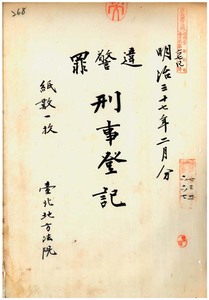 268
明治三十七年二月分
違警罪
刑事登記
紙数一枚
臺北地方法院